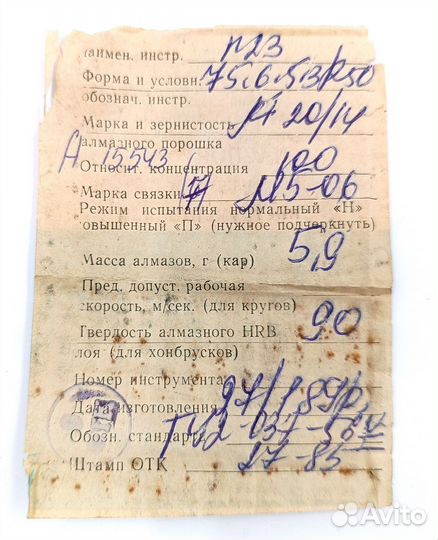 наимен. инстр.
Форма и условн. 75.6.5.3.R50
обознач. инстр.
Марка и зернистость 20/14
алмазного порошка
А 15543
Относит. концентрация 100
Марка связки М5-06
Режим испытания нормальный «Н»
повышенный «П» (нужное подчеркнуть)
Масса алмазов, г (кар) 5,9
Пред. допуст. рабочая
скорость, м/сек. (для кругов)
Твердость алмазного HRB 90
лоя (для хонбрусков)
Номер инструмента
Дата изготовления
Обозн. стандарта ТУ2-037-
Штамп ОТК 27-85
Avito